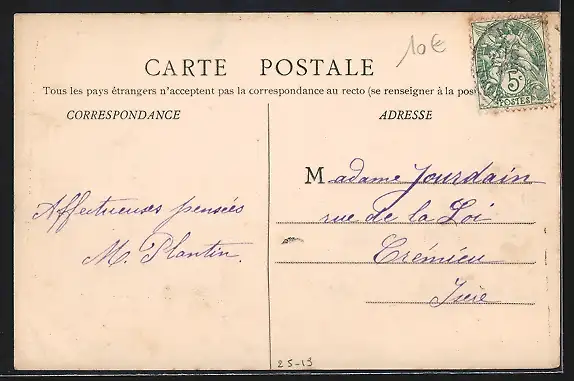 10€
CARTE POSTALE
Tous les pays étrangers n'acceptent pas la correspondance au recto (se renseigner à la pos
CORRESPONDANCE
ADRESSE
5c
POSTES
Madame Jourdain
rue de la Loi
Crémieu
Isère
Affectueuses pensées
M. Plantin.
25-13